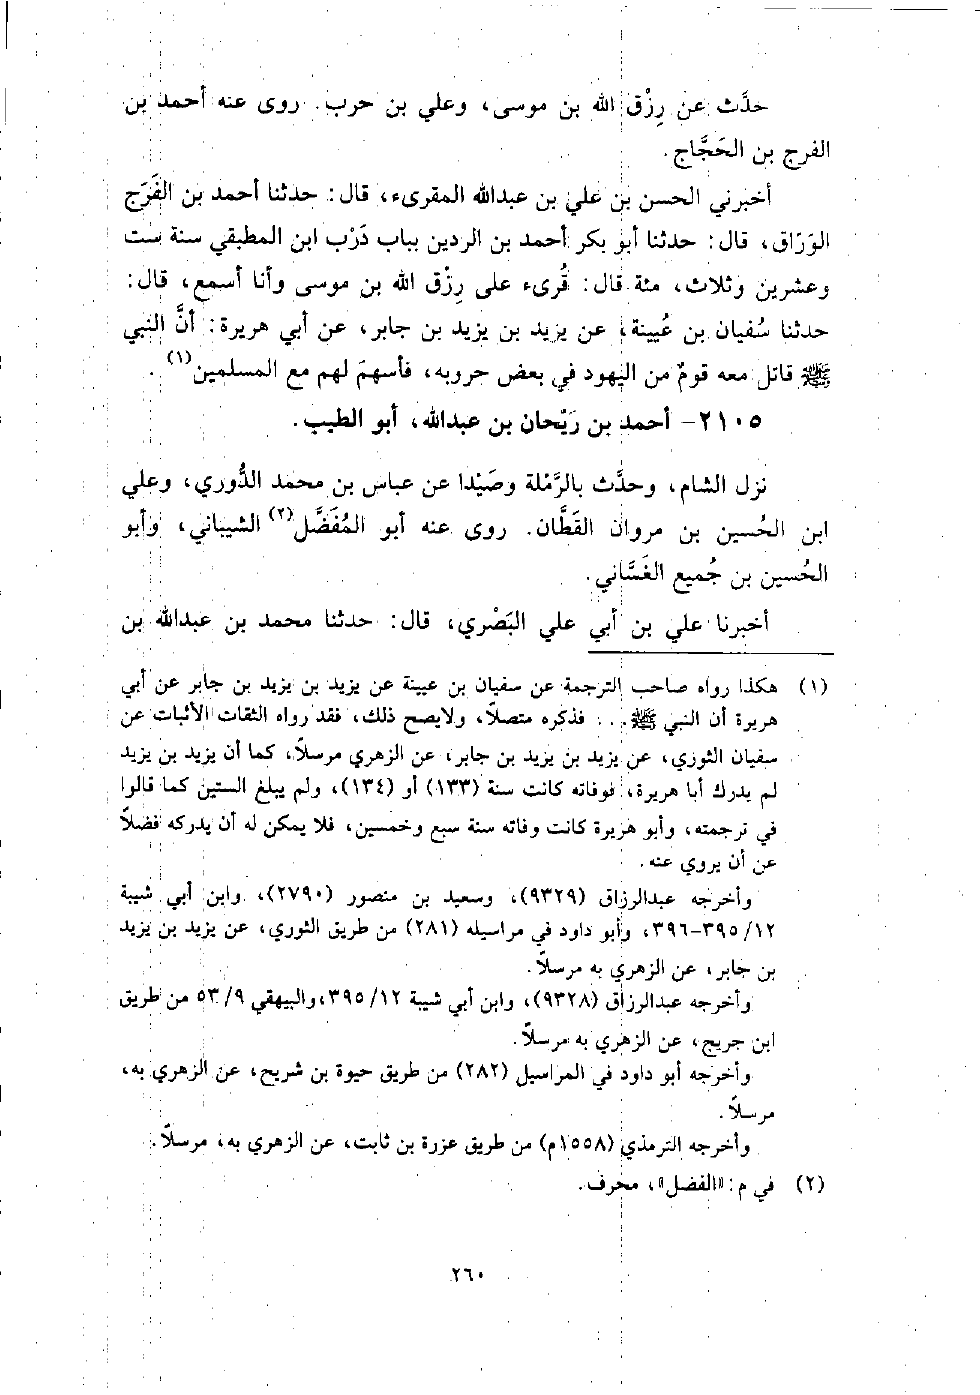 حدَّث عن رِزْق الله بن موسى، وعلي بن حرب. روى عنه أحمد بن
الفرج بن الحَجَّاج.
أخبرني الحسن بن علي بن عبدالله المقرىء، قال: حدثنا أحمد بن الفَرَج
الوَرَّاق، قال: حدثنا أبو بكر أحمد بن الردين بباب دَرْب ابن المطبقي سنة ست
وعشرين وثلاث، مئة قال: قُرىء على رِزْق الله بن موسى وأنا أسمع، قال:
حدثنا سُفيان بن عُيينة، عن يزيد بن يزيد بن جابر، عن أبي هريرة: أنَّ النبي
ﷺ قاتل معه قومٌ من اليهود في بعض حروبه، فأسهمَ لهم مع المسلمين(١).
٢١٠٥- أحمد بن رَيْحان بن عبدالله، أبو الطيب.
نزل الشام، وحدَّث بالرَّمْلة وصَيْدا عن عباس بن محمد الدُّوري، وعلي
ابن الحُسين بن مروان القَطَّان. روى عنه أبو المُفَضَّل(٢) الشيباني، وأبو
الحُسين بن جُميع الغَسَّاني.
أخبرنا علي بن أبي علي البَصْري، قال: حدثنا محمد بن عبدالله بن
(١) هكذا رواه صاحب الترجمة عن سفيان بن عيينة عن يزيد بن يزيد بن جابر عن أبي
هريرة أن النبي ﷺ ... فذكره متصلاً، ولايصح ذلك، فقد رواه الثقات الأثبات عن
سفيان الثوري، عن يزيد بن يزيد بن جابر، عن الزهري مرسلاً، كما أن يزيد بن يزيد
لم يدرك أبا هريرة، فوفاته كانت سنة (١٣٣) أو (١٣٤)، ولم يبلغ الستين كما قالوا
في ترجمته، وأبو هريرة كانت وفاته سنة سبع وخمسين، فلا يمكن له أن يدركه فضلاً
عن أن يروي عنه.
وأخرجه عبدالرزاق (٩٣٢٩)، وسعيد بن منصور (٢٧٩٠)، وابن أبي شيبة
١٢/ ٣٩٥-٣٩٦، وأبو داود في مراسيله (٢٨١) من طريق الثوري، عن يزيد بن يزيد
بن جابر، عن الزهري به مرسلاً.
وأخرجه عبدالرزاق (٩٣٢٨)، وابن أبي شيبة ١٢/ ٣٩٥، والبيهقي ٩/ ٥٣ من طريق
ابن جريج، عن الزهري به مرسلاً.
وأخرجه أبو داود في المراسيل (٢٨٢) من طريق حيوة بن شريح، عن الزهري به،
مرسلاً.
وأخرجه الترمذي (١٥٥٨م) من طريق عزرة بن ثابت، عن الزهري به، مرسلاً.
(٢) في م: «الفضل»، محرف.
٢٦٠